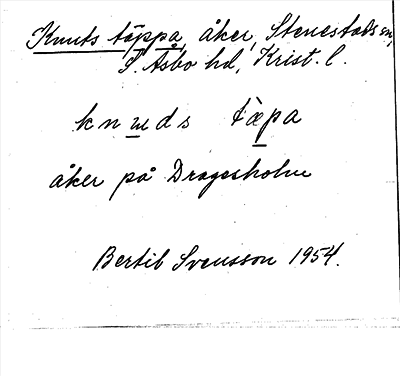 Knuts täppa, åker, Stenestads sn,
S. Åsbo hd, Krist. l.
knuds täpa
åker på Dragesholm
Bertil Svensson 1954.